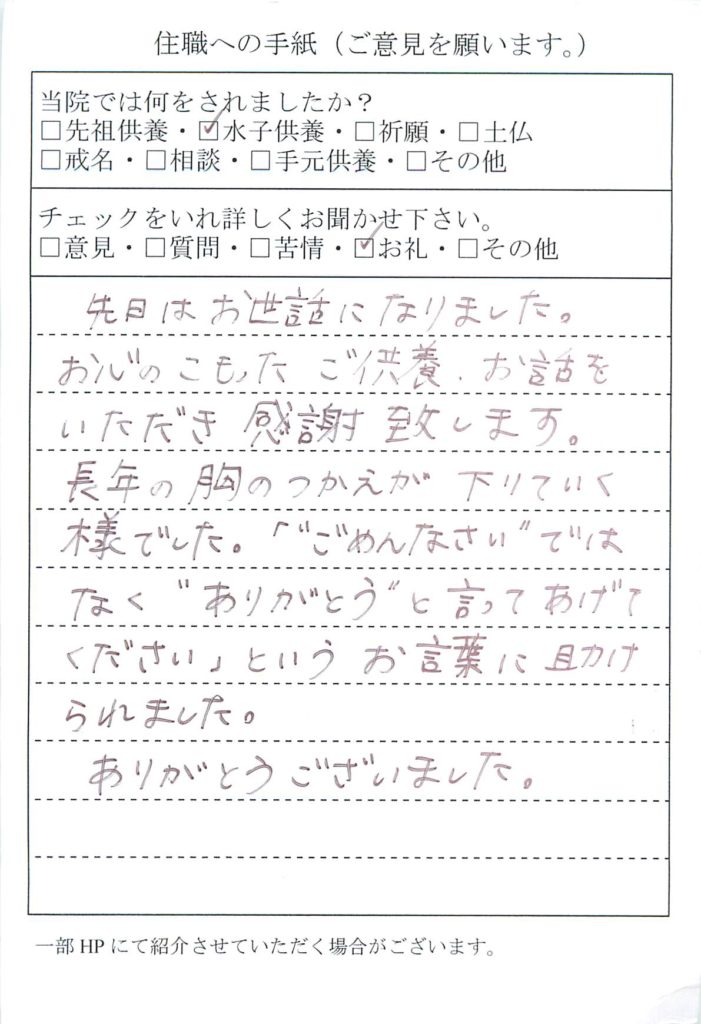 住職への手紙（ご意見を願います。）
当院では何をされましたか？
□先祖供養・☑水子供養・□祈願・□土仏
□戒名・□相談・□手元供養・□その他
チェックをいれ詳しくお聞かせ下さい。
□意見・□質問・□苦情・☑お礼・□その他
先日はお世話になりました。
お心のこもった ご供養、お話を
いただき 感謝 致します。
長年の胸のつかえが 下りていく
様でした。「“ごめんなさい”では
なく “ありがとう”と 言ってあげて
ください」という お言葉に 助け
られました。
ありがとうございました。
一部 HP にて紹介させていただく場合がございます。